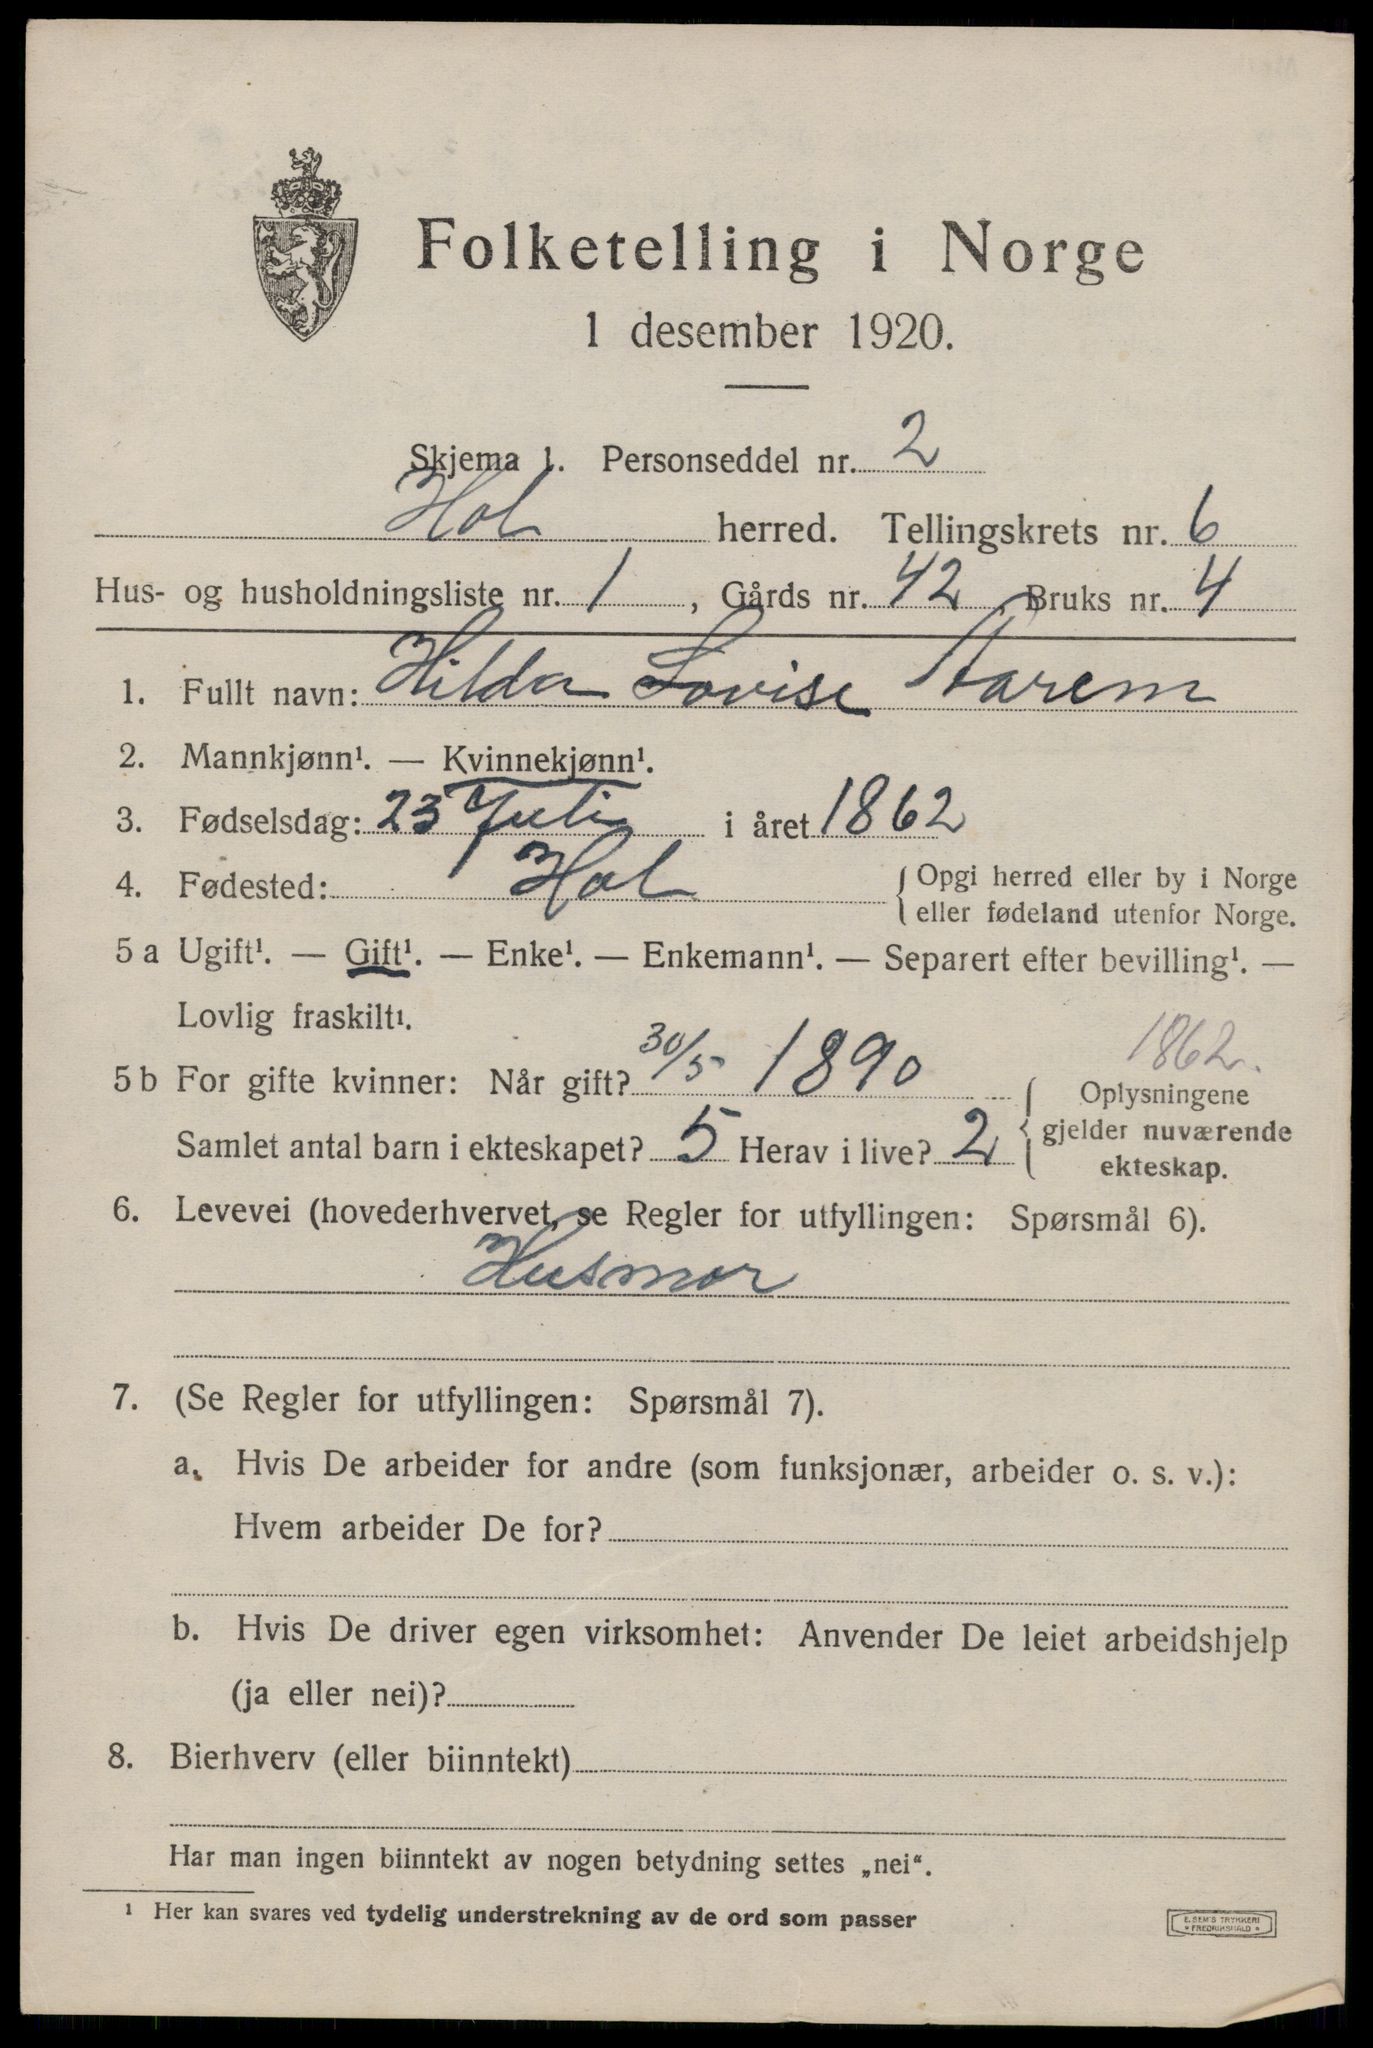 Folketelling i Norge
1 desember 1920.
Skjema 1. Personseddel nr. 2
Hol herred. Tellingskrets nr. 6
Hus- og husholdningsliste nr. 1, Gårds nr. 42, Bruks nr. 4
1. Fullt navn: Hilda Lovise Starem
2. Mannkjønn¹. — Kvinnekjønn¹.
3. Fødselsdag: 23 Juli i året 1862
4. Fødested: Hol { Opgi herred eller by i Norge
eller fødeland utenfor Norge.
5 a Ugift¹. — Gift¹. — Enke¹. — Enkemann¹. — Separert efter bevilling¹. —
Lovlig fraskilt¹.
1862.
5 b For gifte kvinner: Når gift? 30/5 1890 { Oplysningene
Samlet antal barn i ekteskapet? 5 Herav i live? 2 gjelder nuværende
ekteskap.
6. Levevei (hovederhvervet, se Regler for utfyllingen: Spørsmål 6).
Husmor
7. (Se Regler for utfyllingen: Spørsmål 7).
a. Hvis De arbeider for andre (som funksjonær, arbeider o. s. v.):
Hvem arbeider De for?
b. Hvis De driver egen virksomhet: Anvender De leiet arbeidshjelp
(ja eller nei)?
8. Bierhverv (eller biinntekt)
Har man ingen biinntekt av nogen betydning settes „nei“.
¹ Her kan svares ved tydelig understrekning av de ord som passer
E. SEM'S TRYKKERI
* FREDRIKSHALD *